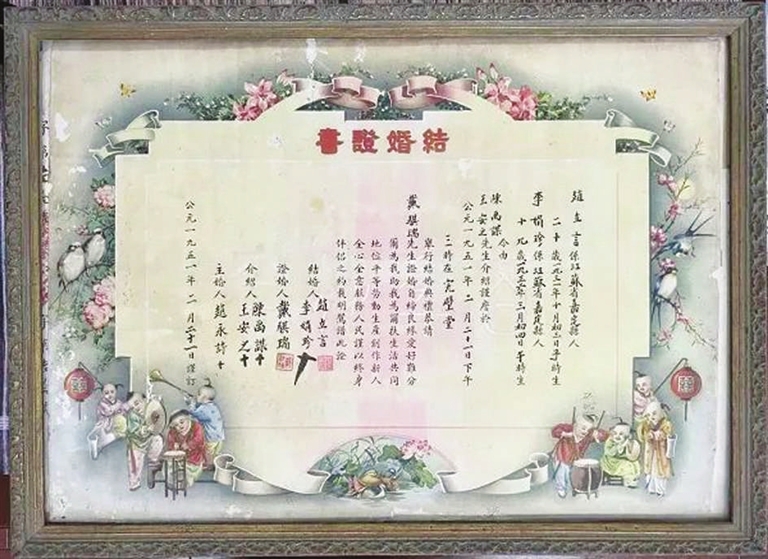 結婚證書
趙立言係江蘇省嘉定縣人
二十歲一九三一年十月初三日子時生
李娟珍係江蘇省嘉定縣人
十九歲一九三三年三月初四日午時生
今由
陳禹謀
王安之先生介紹謹詹於
公元一九五一年二月二十一日下午
三時在完璧堂
舉行結婚典禮恭請
戴騏瑞先生證婚自締良緣愛好難分
爾為我助我為爾扶生活共同
地位平等勞動生產創作新人
全心全意服務人民謹以終身
伴侶之約載明鴛譜此證
結婚人
趙立言
李娟珍
證婚人戴騏瑞
介紹人
陳禹謀
王安之
主婚人趙永詩
公元一九五一年二月二十一日謹訂